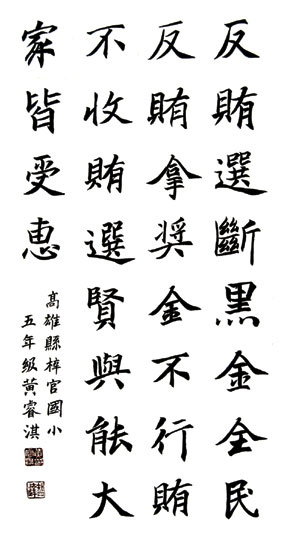 反賄選斷黑金全民
反賄拿奬金不行賄
不收賄選賢與能大
家皆受惠
高雄縣梓官國小
五年級黄睿淇